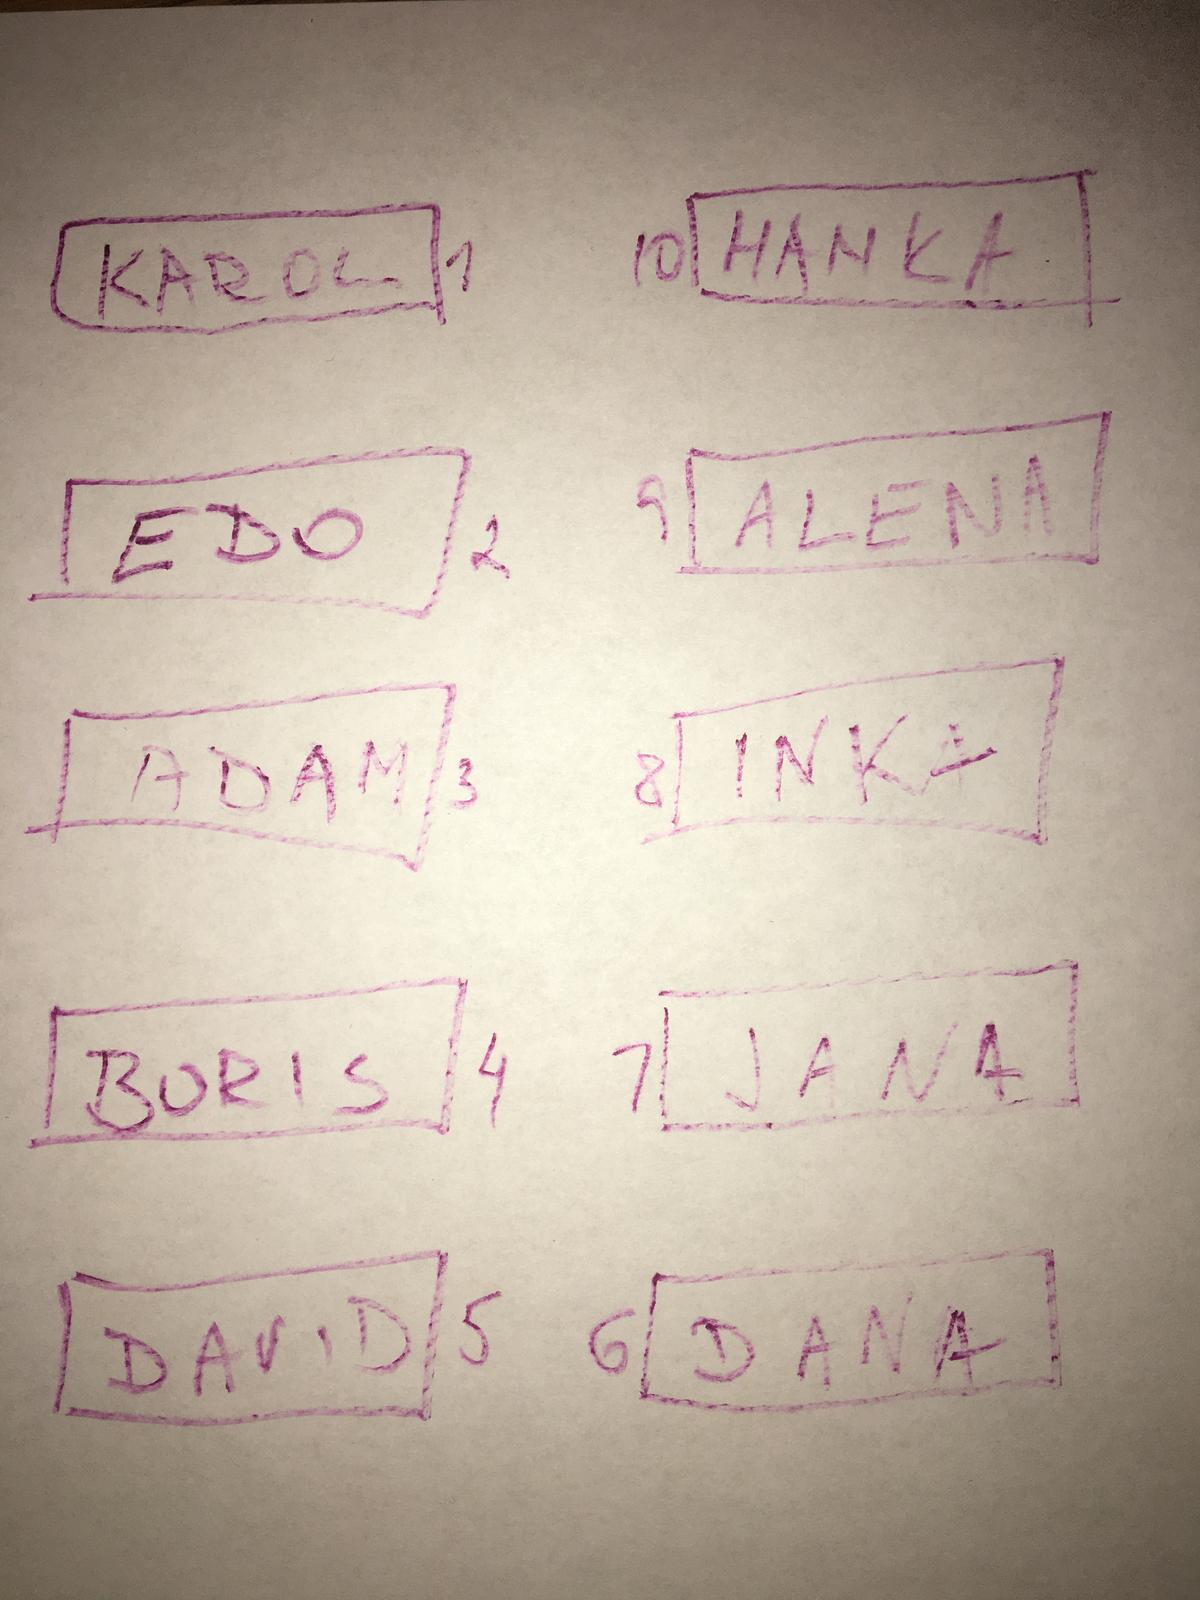 KAROL 1 10 HANKA
EDO 2 9 ALENA
ADAM 3 8 INKA
BORIS 4 7 JANA
DAVID 5 6 DANA